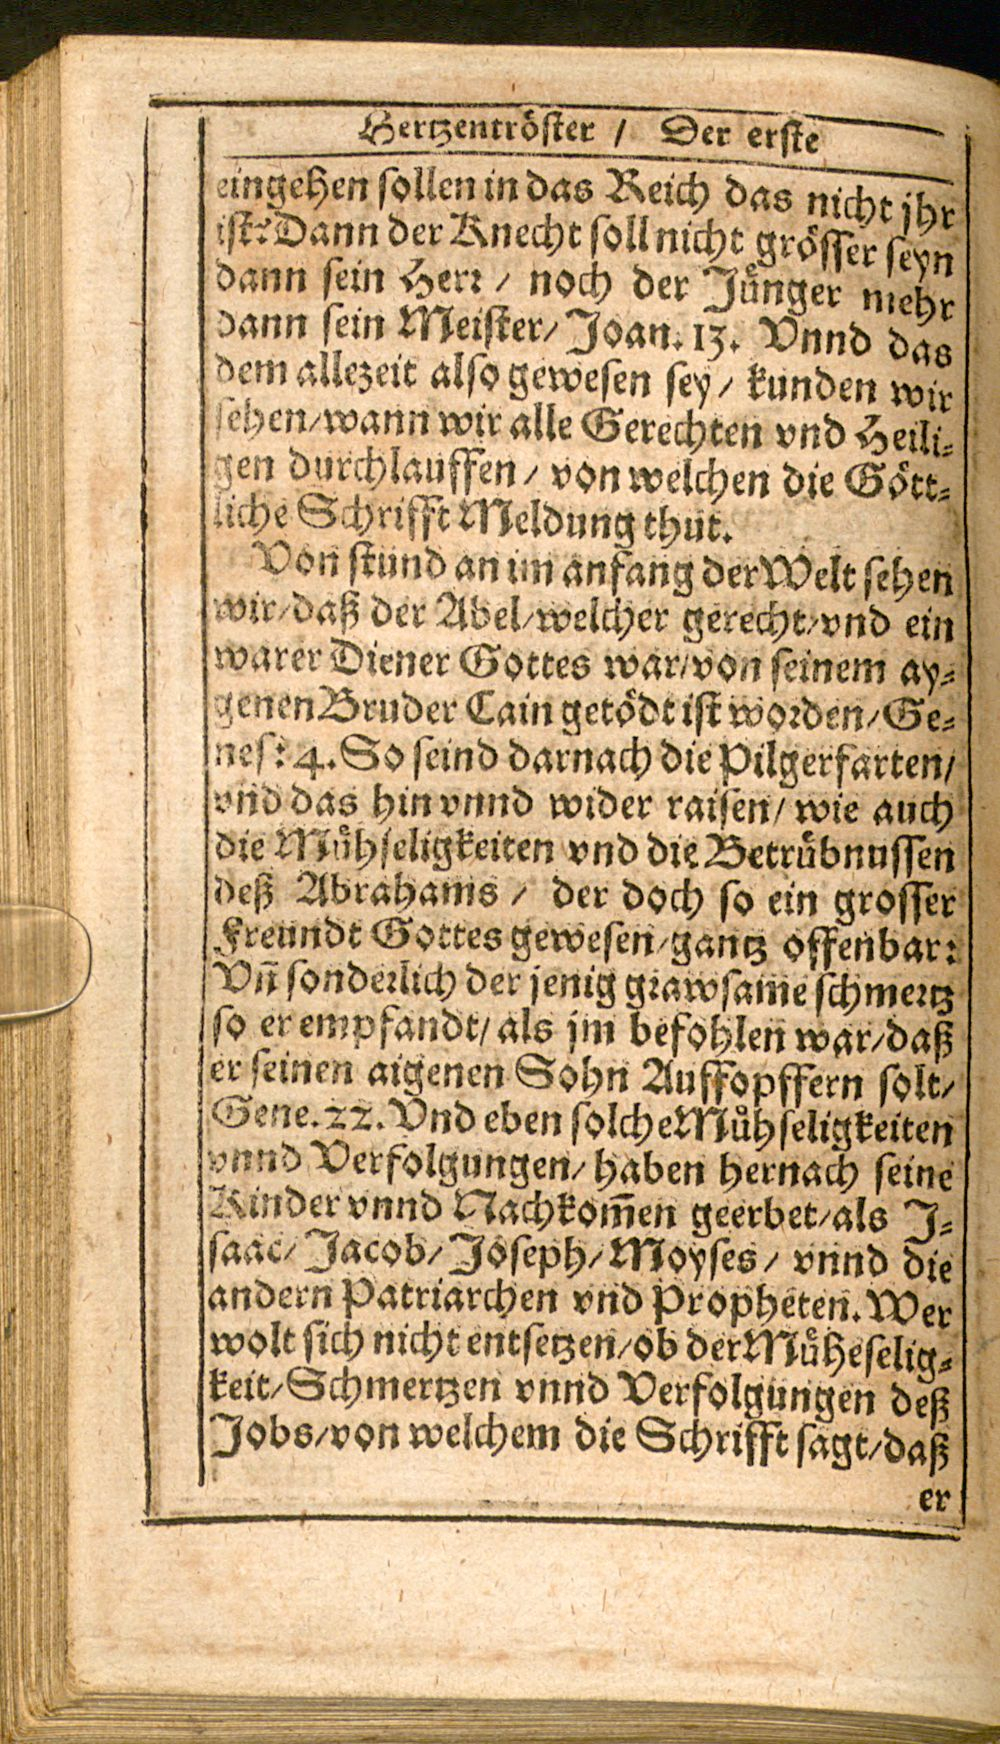 Hertzentröster / Der erste
eingehen sollen in das Reich das nicht jhr
ist? Dann der Knecht soll nicht grösser seyn
dann sein Herr / noch der Jünger mehr
dann sein Meister/ Joan. 13. Vnnd das
dem allezeit also gewesen sey / kunden wir
sehen/wann wir alle Gerechten vnd Heili⸗
gen durchlauffen / von welchen die Gött⸗
liche Schrifft Meldung thut.
Von stund an im anfang der Welt sehen
wir/daß der Abel/welcher gerecht/vnd ein
warer Diener Gottes war/von seinem ay⸗
genen Bruder Cain getödt ist worden/Ge⸗
nes: 4. So seind darnach die Pilgerfarten/
vnd das hin vnnd wider raisen/ wie auch
die Můhseligkeiten vnd die Betrübnussen
deß Abrahams / der doch so ein grosser
Freundt Gottes gewesen/gantz offenbar:
Vn̄ sonderlich der jenig grawsame schmertz
so er empfandt/ als jm befohlen war/daß
er seinen aigenen Sohn Auffopffern solt/
Gene. 22. Vnd eben solche Můhseligkeiten
vnnd Verfolgungen/ haben hernach seine
Kinder vnnd Nachkom̄en geerbet/als J⸗
saac/ Jacob/ Joseph/ Moyses / vnnd die
andern Patriarchen vnd Propheten. Wer
wolt sich nicht entsetzen/ob der Můheselig⸗
keit/ Schmertzen vnnd Verfolgungen deß
Jobs/von welchem die Schrifft sagt/daß
er